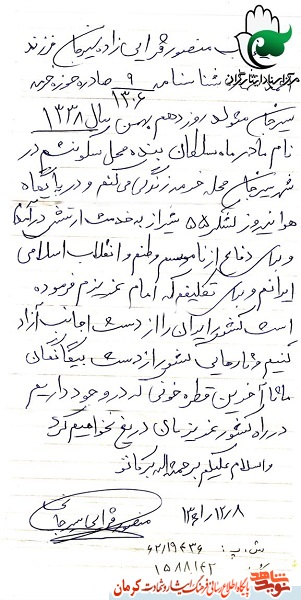 منصور قرائی زاده سیرجان فرزند
شناسنامه ۹ صادره حوزه خرمه
۱۳۰۶
سیرجان متولد روز دهم بهمن سال ۱۳۳۸
نام مادر ماه سلطان بنده محل سکونتم در
شهر سیرجان محله خرمه زندگی می‌کنم و در پایگاه
هوانیروز لشکر ۵۵ شیراز به خدمت ارتش درآمدم
و برای دفاع از ناموسم وطنم و انقلاب اسلامی
ایرانم و برای تکلیفم که امام عزیزم فرموده
است کشور ایران را از دست اجانب آزاد
کنیم و رهایی کشور از دست بیگانگان
ما تا آخرین قطره خونی که در وجود داریم
در راه کشور عزیزمان دریغ نخواهیم کرد
والسلام علیکم و رحمة الله و برکاته
۱۳۶۱/۱۲/۸
منصور قرائی سیرجانی
ش . پ : ۶۲/۱۹۴۳۶
۱۵۸۸۱۴۲
نوید شاهد
پایگاه اطلاع رسانی فرهنگ ایثار و شهادت کرمان